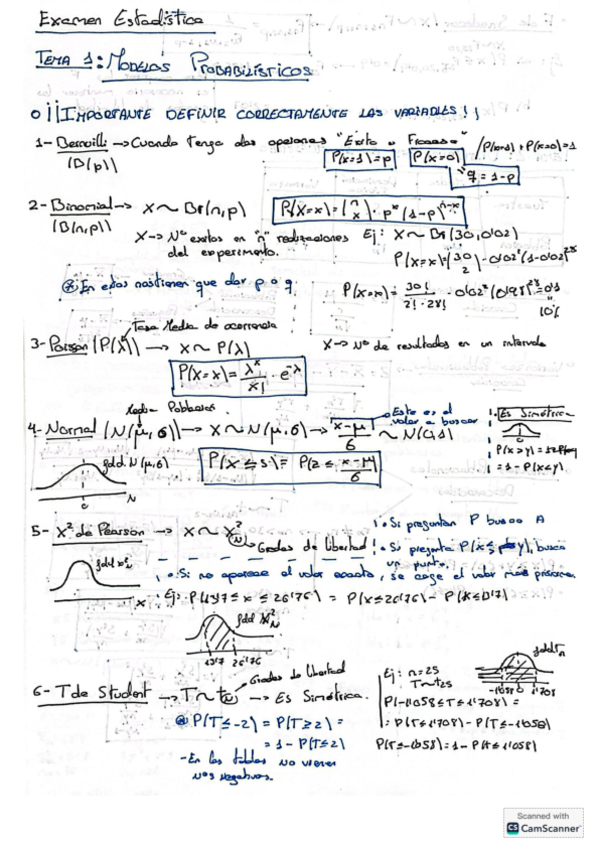 Examen Estadística
TEMA 1: MODELOS PROBABILÍSTICOS
o ¡¡IMPORTANTE DEFINIR CORRECTAMENTE LAS VARIABLES!!
1- Bernoilli → Cuando tenga dos opciones "Éxito o Fracaso" / P(x=1) + P(x=0)=1
(B(p)) P(x=1)=p P(x=0) "q = 1-p
2- Binomial → X ~ Bi(n,p) P(X=x) = (n x) · p^x (1-p)^n-x
(B(n,p))
X → Nº exitos en "n" realizaciones del experimento. Ej: X ~ Bi(30,0'02)
P(x=x) = (30 2) · 0'02² (1-0'02)^28
⊛ En estas nos tienen que dar p o q
P(x=x) = 30! / 2! · 28! · 0'02² (0'98)^28 = 0'1
10%
Tasa Media de ocurrencia
3- Poisson (P(λ)) → X ~ P(λ) X → Nº de resultados en un intervalo
P(X=x) = λ^x / x! · e^-λ
Media Población.
4- Normal (N(μ,σ)) → X ~ N(μ,σ) → x-μ / σ ~ N(0,1)
Este es el valor a buscar
Es Simétrica
fdd N(μ,σ)
P(X ≤ x) = P(z ≤ x-μ / σ)
= 1 - P(x≤y)
5- X² de Pearson → X ~ X²N → Grados de libertad
• Si preguntan P busco A
• Si pregunta P(x≤ y), busco un punto.
• Si no aparece el valor exacto, se coge el valor más próximo.
fdd X²
Ej: P(4'37 ≤ x ≤ 26'76) = P(x≤26'76) -
fdd X²N
4'37 26'76
6- T de Student → T ~ tN → Es Simétrica.
Grados de libertad
@ P(T≤-2) = P(T≥2) =
= 1 - P(T≤2)
- En las tablas no vienen nos negativos.
Ej: n=25
T ~ t25
fdd Tn
-1'058 0 1'708
P(-1'058 ≤ T ≤ 1'708) =
= P(T≤1'708) - P(T≤-1'058)
P(T≤-1'058) = 1 - P(T≤1'058)
Scanned with
CS CamScanner